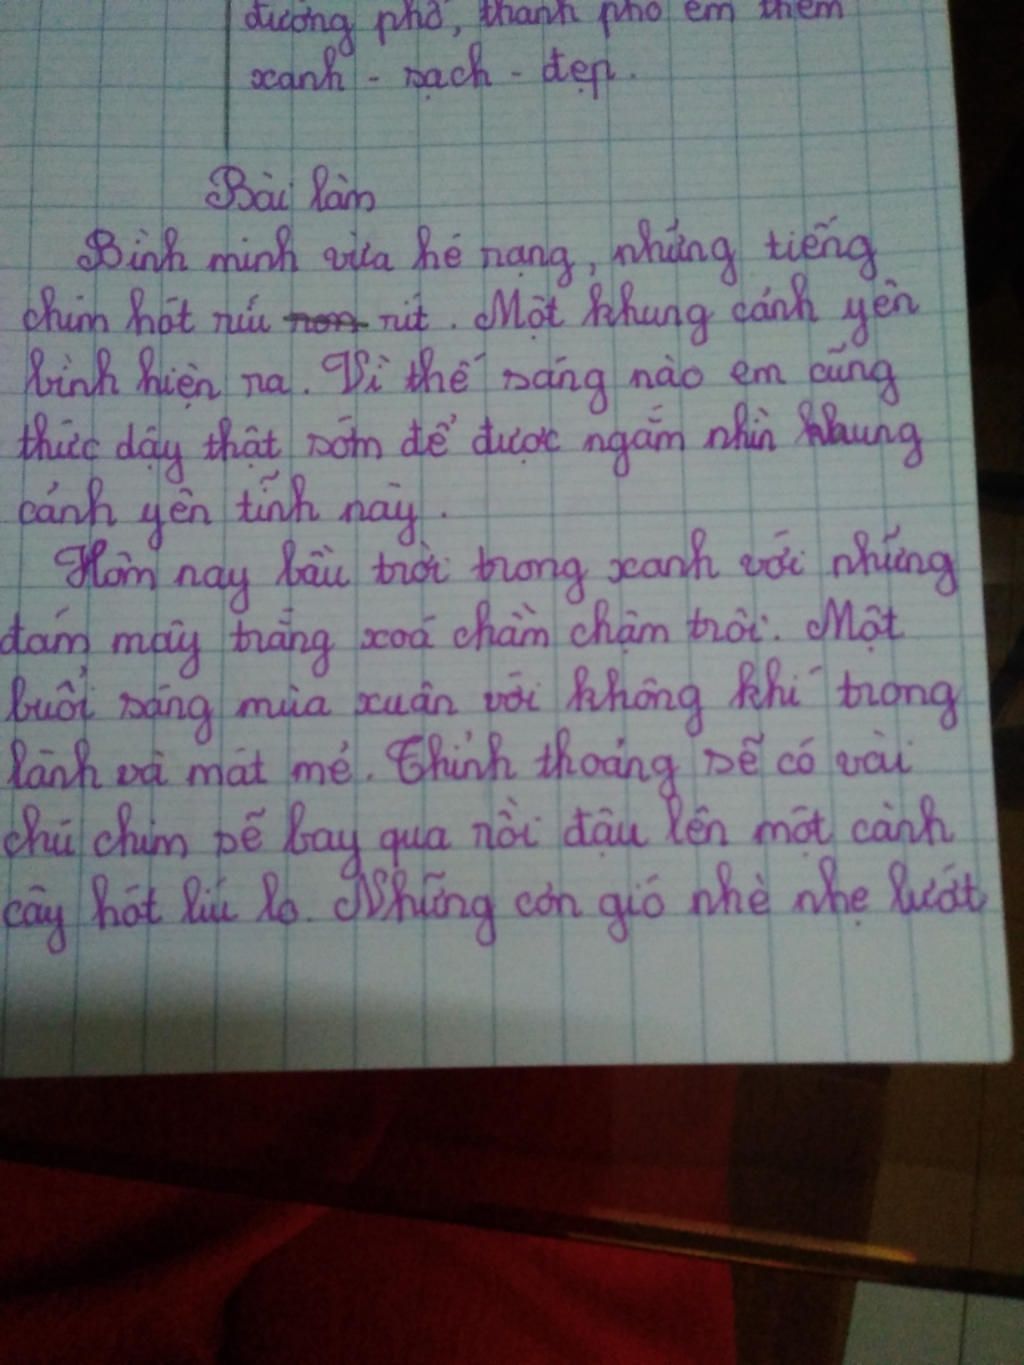 đường phố, thành phố em thêm
xanh - sạch - đẹp.
Bài làm
Bình minh vừa hé rạng, những tiếng
chim hót ríu rít. Một khung cảnh yên
bình hiện ra. Vì thế sáng nào em cũng
thức dậy thật sớm để được ngắm nhìn khung
cảnh yên tĩnh này.
Hôm nay bầu trời trong xanh với những
đám mây trắng xoá chầm chậm trôi. Một
buổi sáng mùa xuân với không khí trong
lành và mát mẻ. Thỉnh thoảng sẽ có vài
chú chim sẽ bay qua rồi đậu lên một cành
cây hót líu lo. Những cơn gió nhè nhẹ lướt